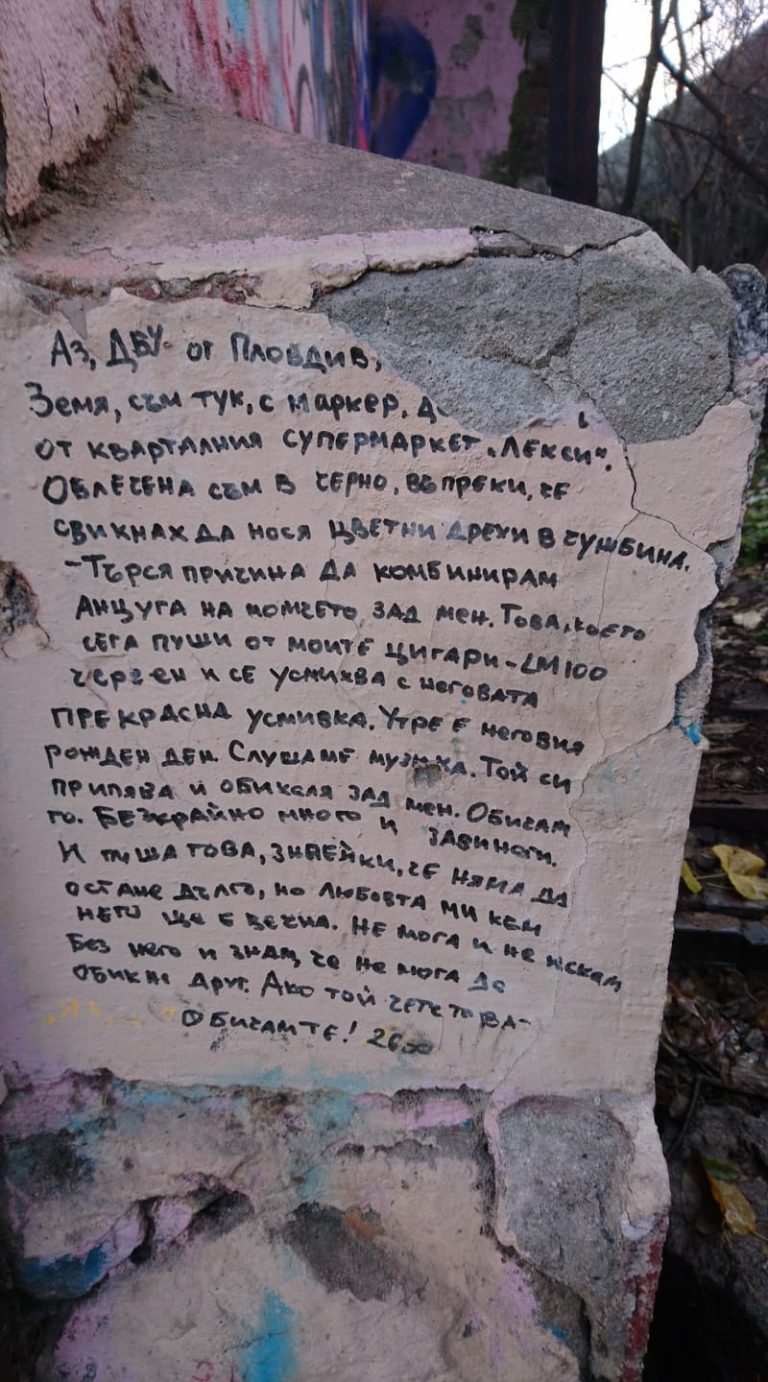 Аз, ДВУ от Пловдив,
Земя, съм тук, с маркер,
от кварталния супермаркет „Лекси“.
Облечена съм в черно, въпреки, че
свикнах да нося цветни дрехи в чужбина.
-Търся причина да комбинирам
анцуга на момчето зад мен. Това, което
сега пуши от моите цигари - LM100
червен и се усмихва с неговата
прекрасна усмивка. Утре е неговия
рожден ден. Слушаме музика. Той си
припява и обикаля зад мен. Обичам
го. Безкрайно много и завинаги.
И пиша това, знаейки, че няма да
остане дълго, но любовта ми към
него ще е вечна. Не мога и не искам
без него и знам, че не мога да
обикна друг. Ако той чете това-
Обичам те!